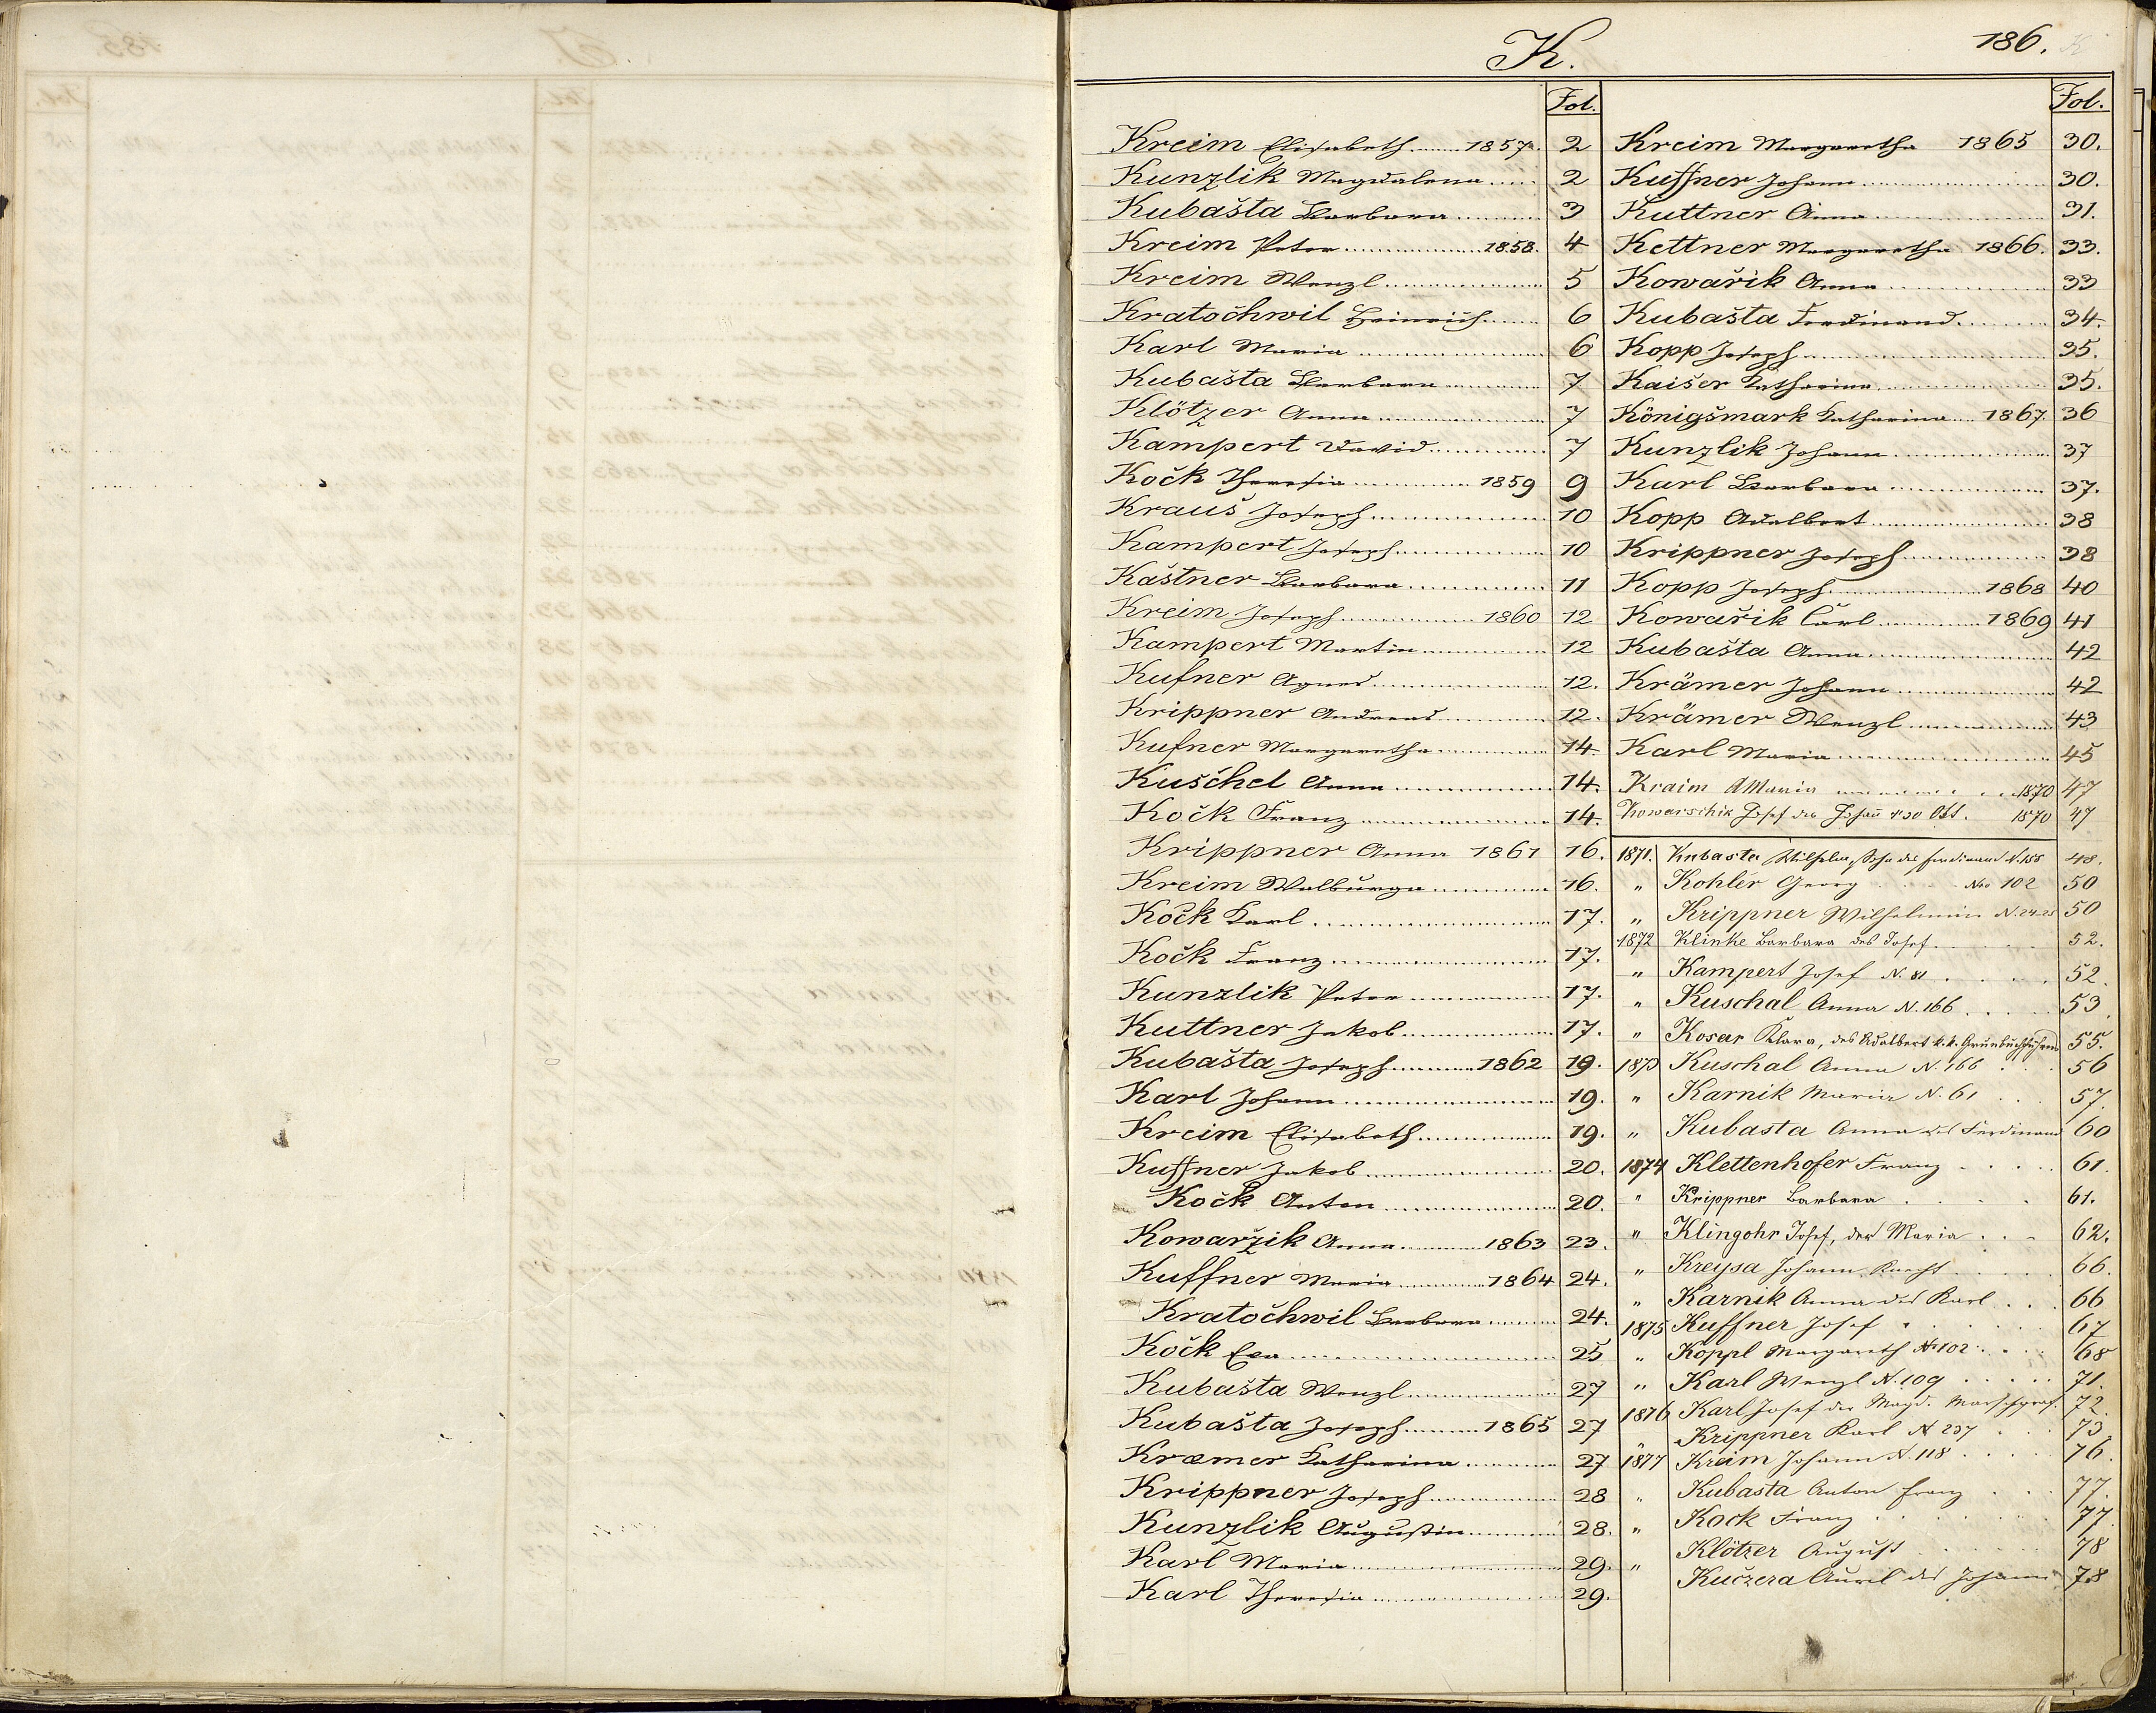 K.
186.
Fol.
Kreim Elisabeth 1857. 2
Kunzlik Magdalena 2
Kubašta Barbara 3
Kreim Peter 1858. 4
Kreim Wenzl 5
Kratočhwil Heinrich 6
Karl Maria 6
Kubašta Barbara 7
Klötzer Anna 7
Kampert David 7
Kočk Theresia 1859 9
Krauš Joseph 10
Kampert Joseph 10
Kaštner Barbara 11
Kreim Joseph 1860 12
Kampert Martin 12
Kufner Agnes 12.
Krippner Andreas 12.
Kufner Margaretha 14.
Kuščhel Anna 14.
Kočk Franz 14.
Krippner Anna 1861 16.
Kreim Walburga 16.
Kočk Karl 17.
Kočk Franz 17.
Kunzlik Peter 17.
Kuttner Jakob 17.
Kubašta Joseph 1862 19.
Karl Johann 19.
Kreim Elisabeth 19.
Kuffner Jakob 20.
Kočk Anton 20.
Kowaržik Anna 1863 23.
Kuffner Maria 1864 24.
Kratočhwil Barbara 24.
Kočk Eva 25
Kubašta Wenzl 27
Kubašta Joseph 1865 27
Kræmer Katharina 27
Krippner Joseph 28
Kunzlik Augustin 28.
Karl Maria 29.
Karl Theresia 29.
Fol.
Kreim Margaretha 1865 30.
Kuffner Johann 30.
Kuttner Anna 31.
Kettner Margaretha 1866. 33.
Kowařik Anna 33
Kubašta Ferdinand 34.
Kopp Joseph 35.
Kaišer Katharina 35.
Königšmark Katharina 1867. 36
Kunzlik Johann 37
Karl Barbara 37.
Kopp Adalbert 38
Krippner Joseph 38
Kopp Joseph 1868 40
Kowařik Carl 1869 41
Kubašta Anna 42
Krämer Johann 42
Krämer Wenzl 43
Karl Maria 45
Kraim A Maria 1870 47
Kowarschik Josef des Johañ 1870 47
1871. Kubasta Wilhelm, Sohn des Ferdinand N. 155 48.
" Kohler Georg Nro 102 50
" Krippner Wilhelmine N. 24-25 50
1872 Klinke Barbara des Josef 52.
" Kampert Josef N. 81 52.
" Kuschal Anna N. 166 53.
" Kosar Klara, des Adalbert k. k. Grunbuchführers 55.
1873 Kuschal Anna N. 166 56
" Karnik Maria N. 61 57.
" Kubasta Anna des Ferdinand 60
1874 Klettenhofer Franz 61.
" Krippner Barbara 61.
" Klingohr Josef, der Maria 62.
" Kreysa Johann, Knecht 66.
" Karnik Anna des Karl 66
1875 Kuffner Josef 67
" Köppl Margareth N 102 68
" Karl Wenzl N. 109 71.
1876 Karl Josef der Magd. 72.
" Krippner Karl N 237 73
1877 Kreim Johann N. 118 76.
" Kubasta Anton Franz 77.
" Kock Franz 77.
" Klötzer August 78
Kučzera Aurel des Johann 78